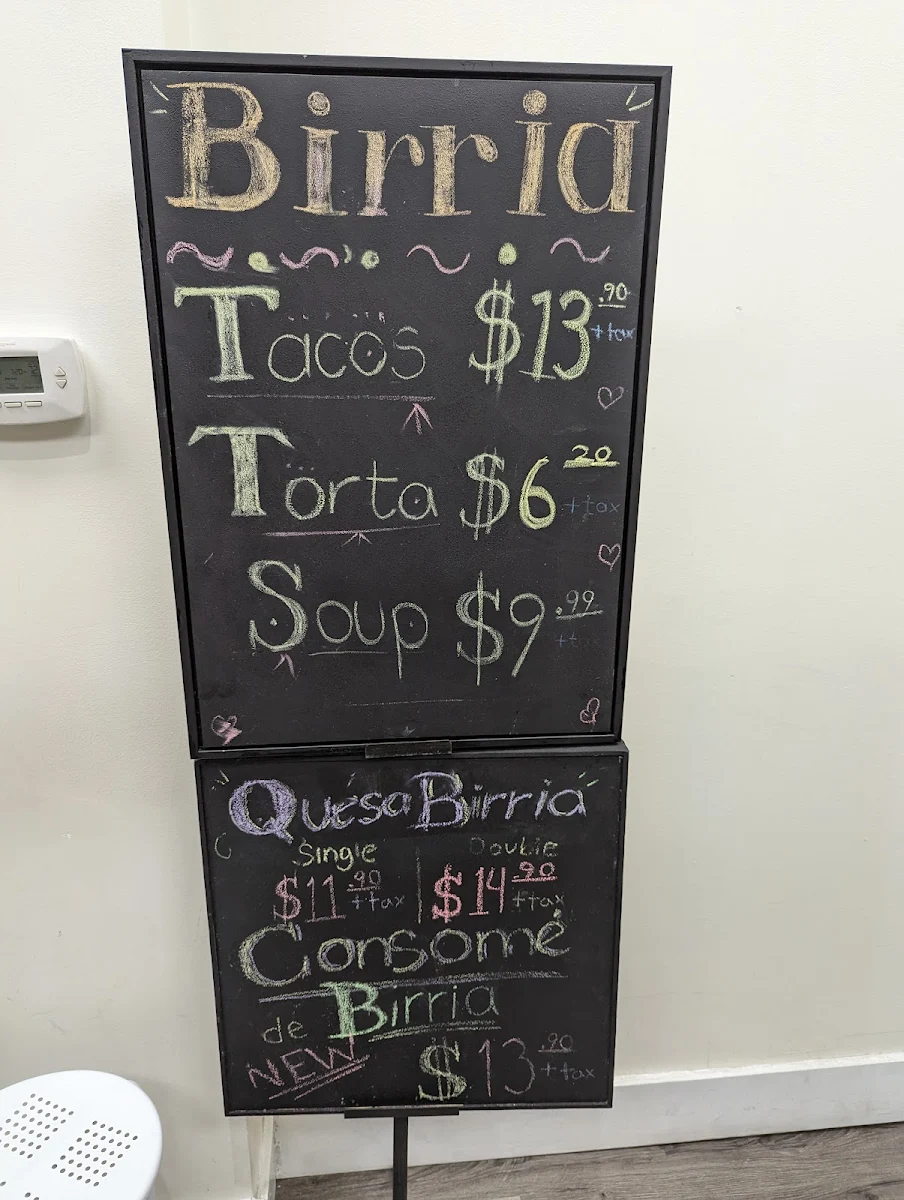 Birria
Tacos $13.90 + tax
Torta $6 20 + tax
Soup $9.99 + tax
QuesaBirria
Single Double
$11.90 + tax $14.90 + tax
Consomé
de Birria
NEW $13.90 + tax